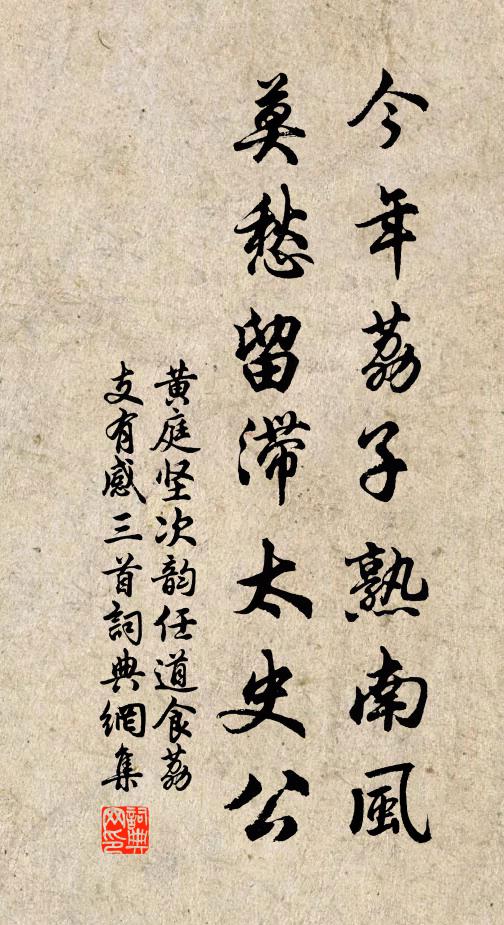 今年荔子熟南風
莫愁留滯太史公
黄庭坚次韵任道食荔
支有感三首詞典網集
詞典
网印